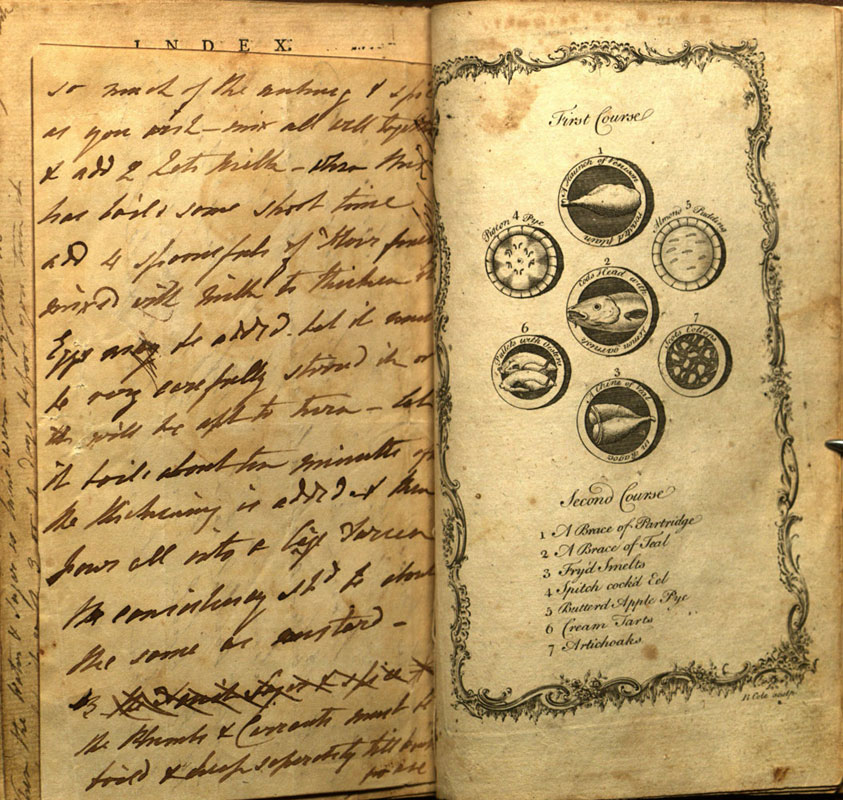 INDEX.
so much of the nutmeg & spice
as you wish - mix all well together
& add 2 Qts Milk - when this
has boild some short time
add 4 spoonfuls of flour
mixed with milk to thicken it
Eggs may be added. but it must
be very carefully stirred in or
it will be apt to turn - let
it boil about ten minutes after
the thickening is added & then
pour all into a large Tureen
the consistency shd be about
the same as custard -
the Rhumb & Currants must be
boild & kept separately till
First Course
1
A Haunch of Venison roasted plain
4
Pigeon Pye
5
Almond Pudding
2
Cods Head with lemon garnish
6
Pullets with Oysters
7
Scots Collops
3
A Chine of Veal in Ragoo
Second Course
1 A Brace of Partridge
2 A Brace of Teal
3 Fry'd Smelts
4 Spitch cock'd Eel
5 Butterd Apple Pye
6 Cream Tarts
7 Artichoaks
N. Cole sculp.